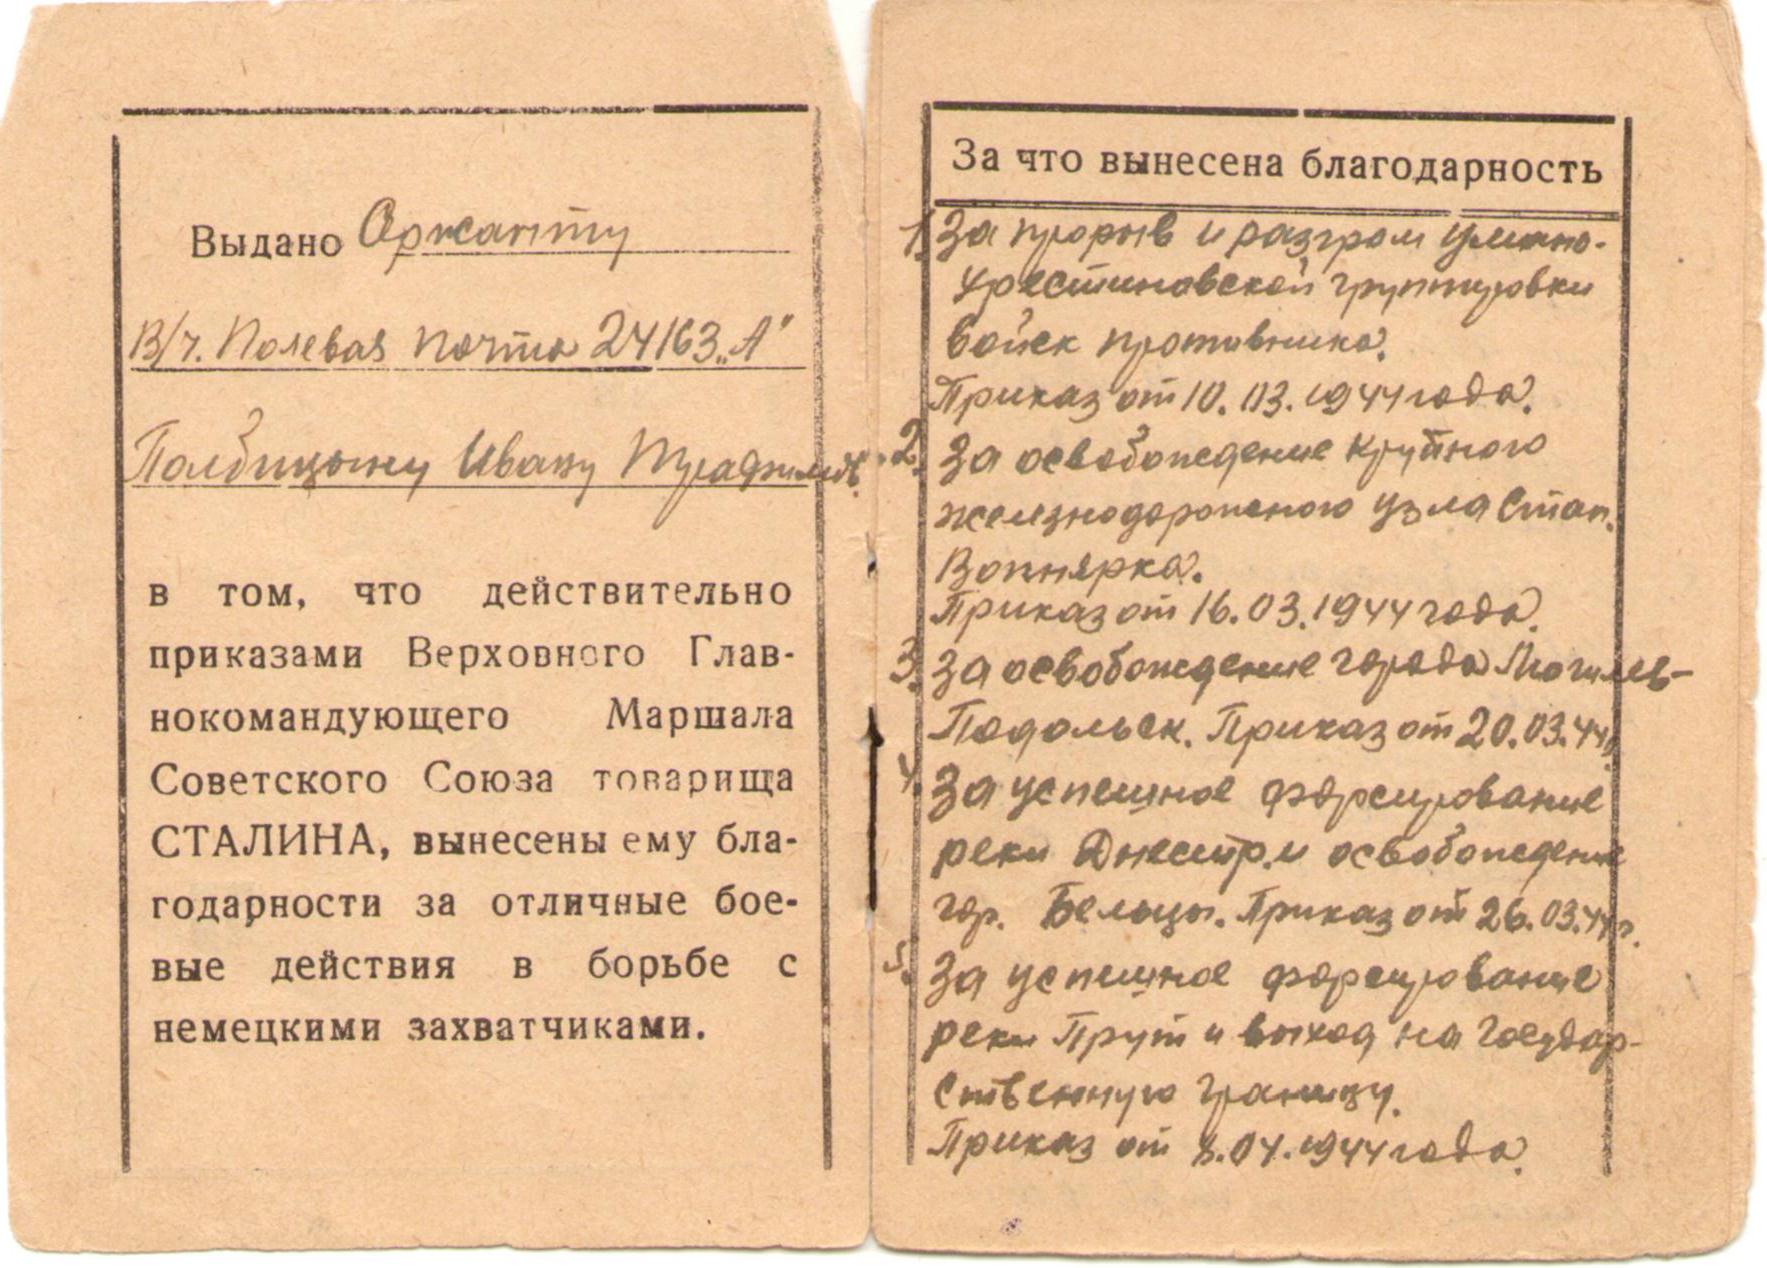 Выдано Сержанту
В/ч. Полевая почта 24163 „А"
Полбицыну Ивану
в том, что действительно
приказами Верховного Глав-
нокомандующего Маршала
Советского Союза товарища
СТАЛИНА, вынесены ему бла-
годарности за отличные бое-
вые действия в борьбе с
немецкими захватчиками.
За что вынесена благодарность
1. За прорыв и разгром Умано-
Христиновской группировки
войск противника.
Приказ от 10.03.1944 года.
2. За освобождение крупного
железнодорожного узла Стан.
Вапнярка.
Приказ от 16.03.1944 года.
3. За освобождение города Могилев-
Подольск. Приказ от 20.03.44г.
4. За успешное форсирование
реки Днестр и освобождение
гор. Бельцы. Приказ от 26.03.44г.
5. За успешное форсирование
реки Прут и выход на государ-
ственную границу.
Приказ от 8.04.1944 года.